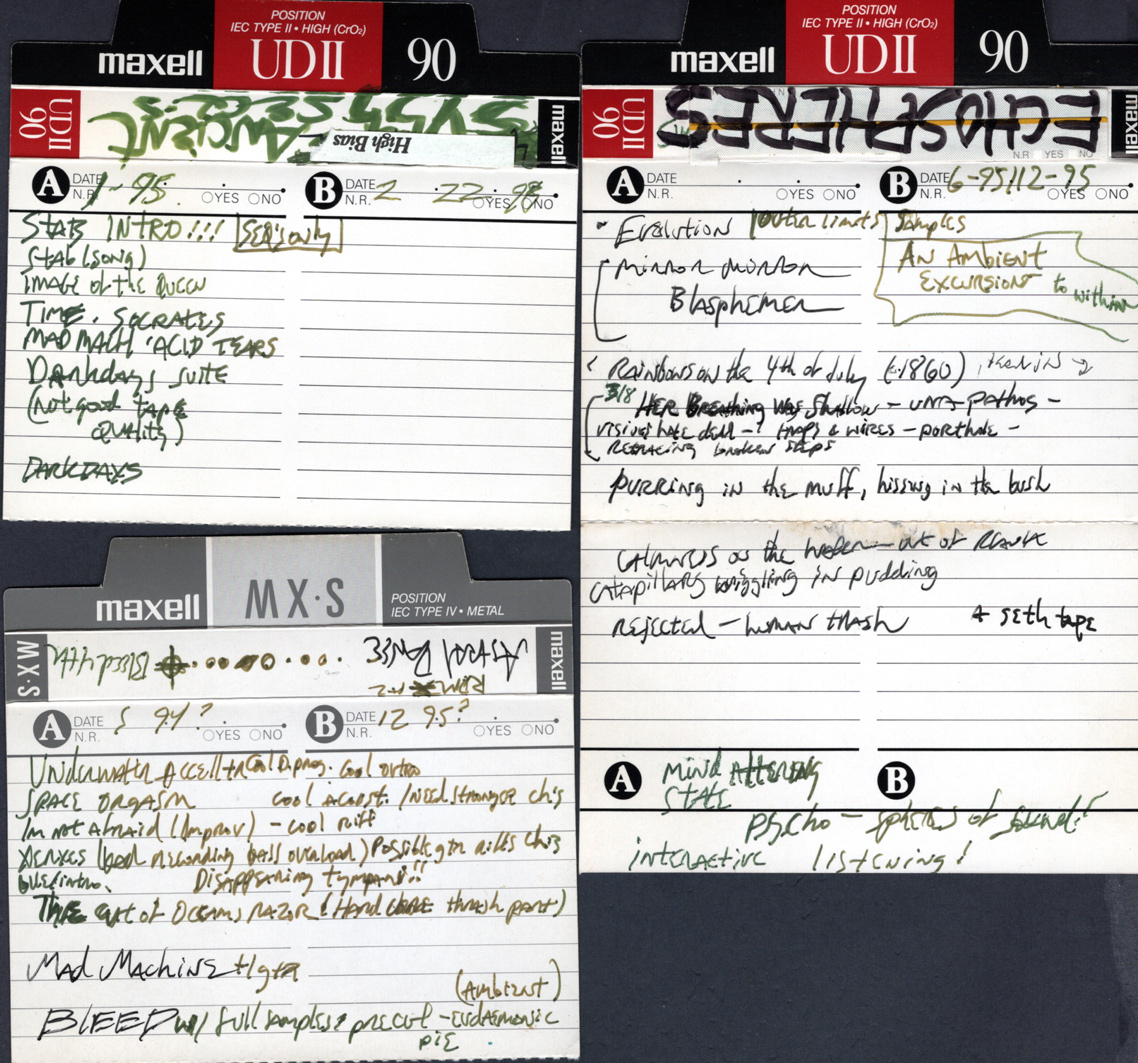 POSITION
IEC TYPE II • HIGH (CrO₂)
maxell UDII 90
UDII 90
ANCIENT
High Bias
maxell
A DATE 1-95 N.R. YES NO
B DATE 2 22 N.R. YES NO
STAB INTRO!!! SEQ'S only
STAB (SONG)
IMAGE of the QUEEN
TIME. SOCRATES
MAD MACH 'ACID TEARS
Darkdays SUITE
(not good tape
QUALITY)
DARKDAYS
POSITION
IEC TYPE II • HIGH (CrO₂)
maxell UDII 90
UDII 90
ECHOSPHERES
N.R YES NO
maxell
A DATE N.R. YES NO
B DATE 6-95/12-95 N.R. YES NO
Evolution Outer Limits Samples
Mirror Mirror
Blasphemer
AN AMBIENT
EXCURSION to within
RAINBOWS ON the 4th of July (-1860)
3/8 HER Breathing Was Shallow - UNA-PATHOS -
WIRES - PORTHOLE -
RETRACING broken STEPS
PURRING in the muff, hissing in the bush
CALMNESS as the out of
CATAPILLARS wiggling in pudding
REJECTED - HUMAN TRASH + SETH tape
A MIND ALTERING
STATE
B
Psycho - spheres of sound!
INTERACTIVE listening!
maxell MX•S
POSITION
IEC TYPE IV • METAL
MX•S
Bleed 4th
ASTRAL
maxell
A DATE 5 94? N.R. YES NO
B DATE 12 95? N.R. YES NO
Underwater cool outro
SPACE ORGASM cool /NEED STRONGER ch's
I'm not Afraid (Improv) - cool riff
XERXES (bad recording bass overload) Possible gtr
intro. Disappearing tympani!!
out of OCCAMS RAZOR (HARD thrash part)
Mad Machine + 1 gtr
(Ambient)
BLEED w/ full samples & precut - EUDAEMONIC
PIE